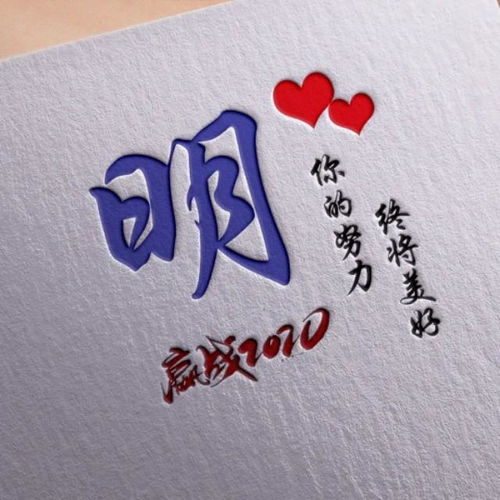 明
你的努力
终将美好
赢战2020